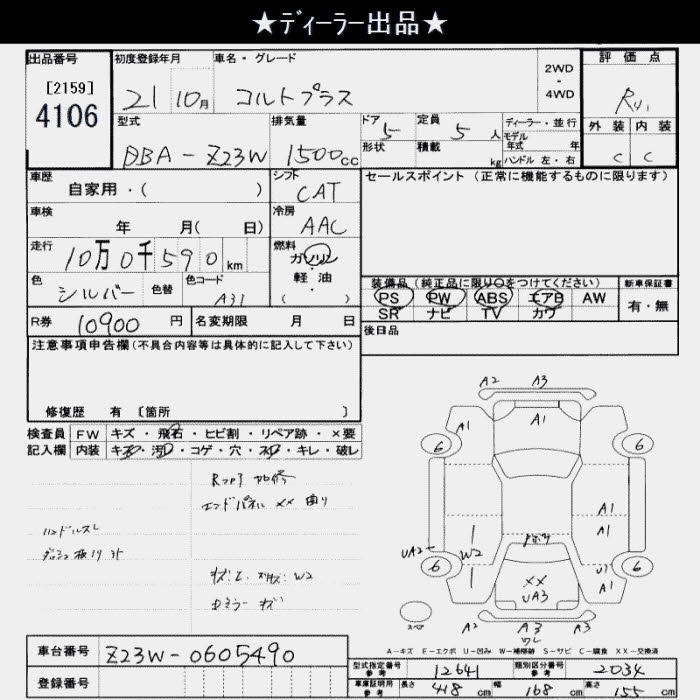 ★ディーラー出品★
出品番号
[2159]
4106
初度登録年月
21 10月
車名・グレード
コルトプラス
2WD
-
4WD
評価点
外装 内装
C C
型式
DBA-Z23W
排気量
1500cc
ドア 5
形状
定員 5人
積載 kg
ディーラー・並行
モデル年式 年
ハンドル 左・右
車歴
自家用・( )
シフト
CAT
車検
年 月( 日)
冷房
AAC
走行
10万0千590km
燃料
ガソリン
軽・油
( )
色
シルバー
色替
色コード
A31
R券 10900円
名変期限 月 日
セールスポイント(正常に機能するものに限ります)
装備品(純正品に限り○をつけてください)
PS PW ABS エアB AW
SR ナビ TV カワ
新車保証書
有・無
後日品
注意事項申告欄(不具合内容等は具体的に記入して下さい)
修復歴 有 〔箇所 〕
検査員 FW キズ・飛石・ヒビ割・リペア跡・×要
記入欄 内装 キズ・汚レ・コゲ・穴・スレ・キレ・破レ
エンドパネル ××曲り
ハンドルスレ
A2 A3
A1 A1
6 6
A1
A1
UA2
W2
6 6
××
UA3
U1
A1
A2 A3 A3
ワレ
スペア
A-キズ E-エクボ U-凹み W-補修跡 S-サビ C-腐食 XX-交換済
車台番号 Z23W-0605490
登録番号
型式指定番号
参考
12641
類別区分番号
参考
2034
車庫証明用
参考
長さ 418cm 幅 168cm 高さ 155cm